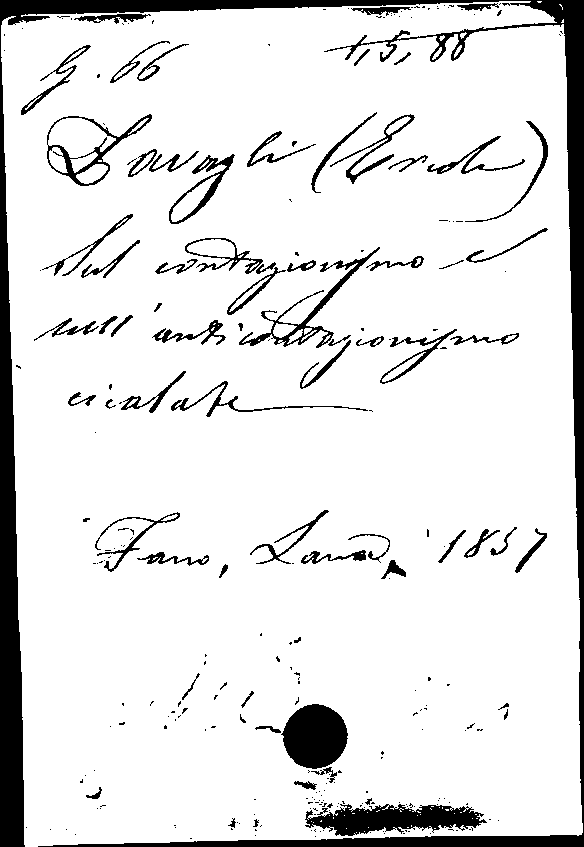 G. 66 1,5,88
Zavagli (Ercole)
Sul contagionismo e
sull'anticontagionismo
cicalate
Fano, Lana, 1837